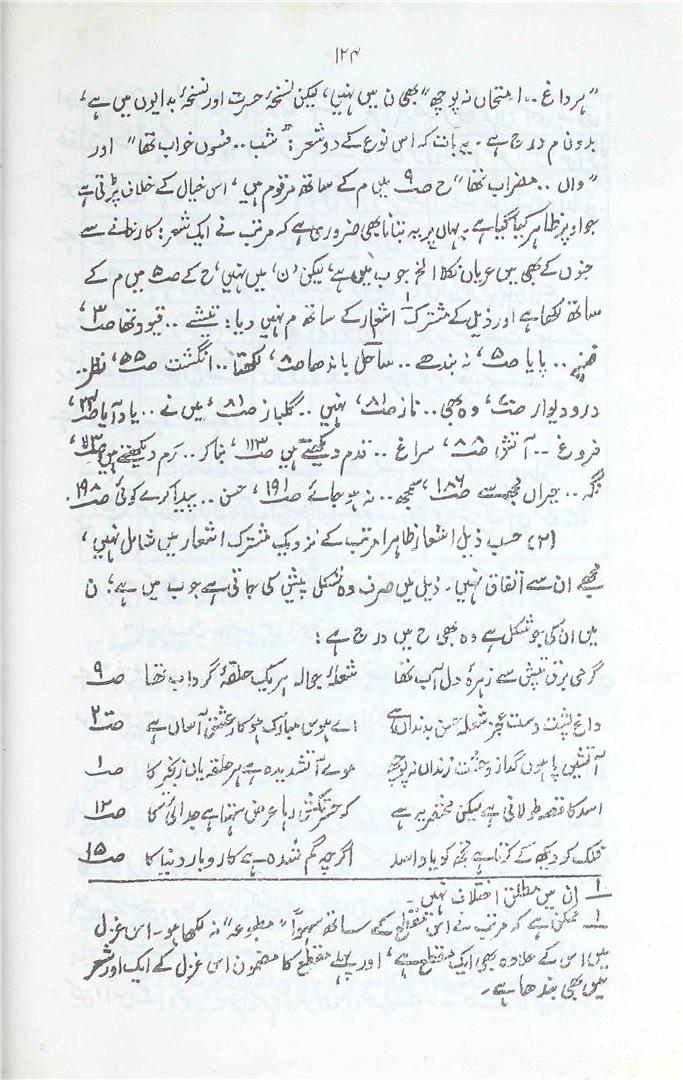 ۱۲۴
"ہر داغ .. امتحاں نہ پوچھ" بھی ن میں نہیں، لیکن نسخۂ حسرت اور نسخۂ بدایوں میں ہے،
بدون م درج ہے۔ یہ بات کہ اس نوع کے دو شعر: "شب .. فسوں خواب تھا" اور
"واں .. مضراب تھا" ح صـ ۹ میں م کے ساتھ مرقوم ہیں، اس خیال کے خلاف پڑتی ہے
جو اوپر ظاہر کیا گیا ہے۔ یہاں پر یہ بتانا بھی ضروری ہے کہ مرتب نے ایک شعر: کارخانے سے
جنوں کے بھی میں عریاں نکلا الخ جو ب میں ہے، لیکن 'ن' میں نہیں، ح کے صـ ۵ میں م کے
ساتھ لکھا ہے اور ذیل کے مشترک اشعار کے ساتھ م نہیں دیا: تیشے .. قیود تھا صـ ۳،
.. پایا صـ ۵، نہ بندھے .. ساحل باندھا صـ ۸، لکھتا .. انگشت صـ ۵۵، نظر ..
در و دیوار صـ، وہ بھی .. ناز صـ ۸۱، نہیں .. گلباز صـ ۸۱، میں نے .. یاد آیا صـ،
فروغ .. آتش صـ ۸۸، سراغ .. قدم دیکھتے ہیں صـ ۱۱۳، بنا کر .. رَم دیکھتے ہیں صـ ۱۱۳،
نگہ .. حیراں مجھ سے صـ ۱۸۶، سمجھ .. نہ ہو جائے صـ ۱۹۱، حسن .. پیدا کرے کوئی صـ ۱۹۸۔
(۲) حسب ذیل اشعار ظاہراً مرتب کے نزدیک مشترک اشعار میں شامل نہیں،
مجھے ان سے اتفاق نہیں۔ ذیل میں صرف وہ شکل پیش کی جاتی ہے جو ب میں ہے؛ ن
میں ان کی جو شکل ہے وہ بھی ح میں درج ہے:
گرمی برق تپش سے زہرۂ دل آب تھا شعلۂ جوالہ ہر یک حلقۂ گرداب تھا صـ ۹
داغ پشت دست عجز شعلہ خس بدنداں ہے اے ہوس مبارک ہو کار عشق آساں ہے صـ ۲
آتشیں پا ہوں گداز وحشت زنداں نہ پوچھ موے آتشدیدہ ہے ہر حلقہ یاں زنجیر کا صـ ۱
اسد کا قصہ طولانی ہے لیکن مختصر یہ ہے کہ حسرت کش رہا عرض ستمہاے جدائی کا صـ ۱۲
فلک کو دیکھ کے کرتا ہے تجھ کو یاد اسد اگرچہ گم شدہ ہے کاروبار دنیا کا صـ ۱۵
۱ ان میں مطلق اختلاف نہیں۔
۱ ممکن ہے کہ مرتب نے اس مقطع کے ساتھ سہواً "مطبوعہ" نہ لکھا ہو۔ اس غزل
میں اس کے علاوہ بھی ایک مقطع ہے، اور پہلے مقطع کا مضمون اس غزل کے ایک اور شعر
میں بھی بندھا ہے۔